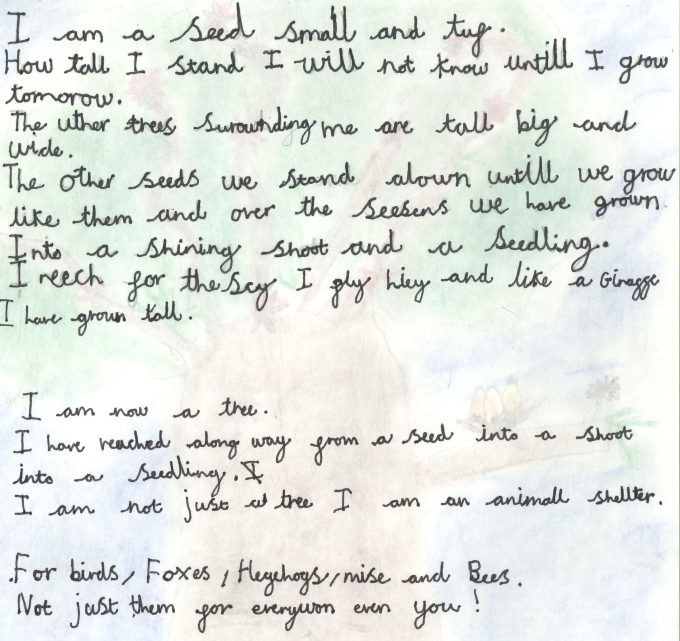 I am a seed small and tuf.
How tall I stand I will not know untill I grow
tomorow.
The uther trees surounding me are tall big and
wide.
The other seeds we stand alown untill we grow
like them and over the seesens we have grown
Into a shining shoot and a seedling.
I reech for the scy I fly hiey and like a Giraffe
I have grown tall.
I am now a tree.
I have reached along way from a seed into a shoot
into a seedling. I
I am not just a tree I am an animall shellter.
.For birds, Foxes, Hegehogs, mise and Bees.
Not just them for everywon even you!